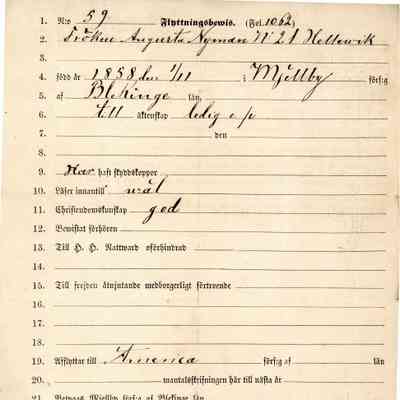 1. N:o 59 Flyttningsbewis. (Fol. 1062)
2. Fröken Augusta Nyman N 21 Hellewik
3.
4. född år 1858, den 1/11 i Mjellby förs:g
5. af Blekinge län,
6. till äktenskap ledig e/p
7. den
8.
9. Har haft skyddskoppor
10. Läser innantill wäl
11. Christendomskunskap god
12. Bewistat förhören
13. Till H. H. Nattward oförhindrad
14.
15. Till frejden åtnjutande medborgerligt förtroende
16.
17.
18.
19. Afflyttar till America förs:g af län
20. mantalsskrifningen här till nästa år
21. Betygas Mjellby förs:g af Blekinge län